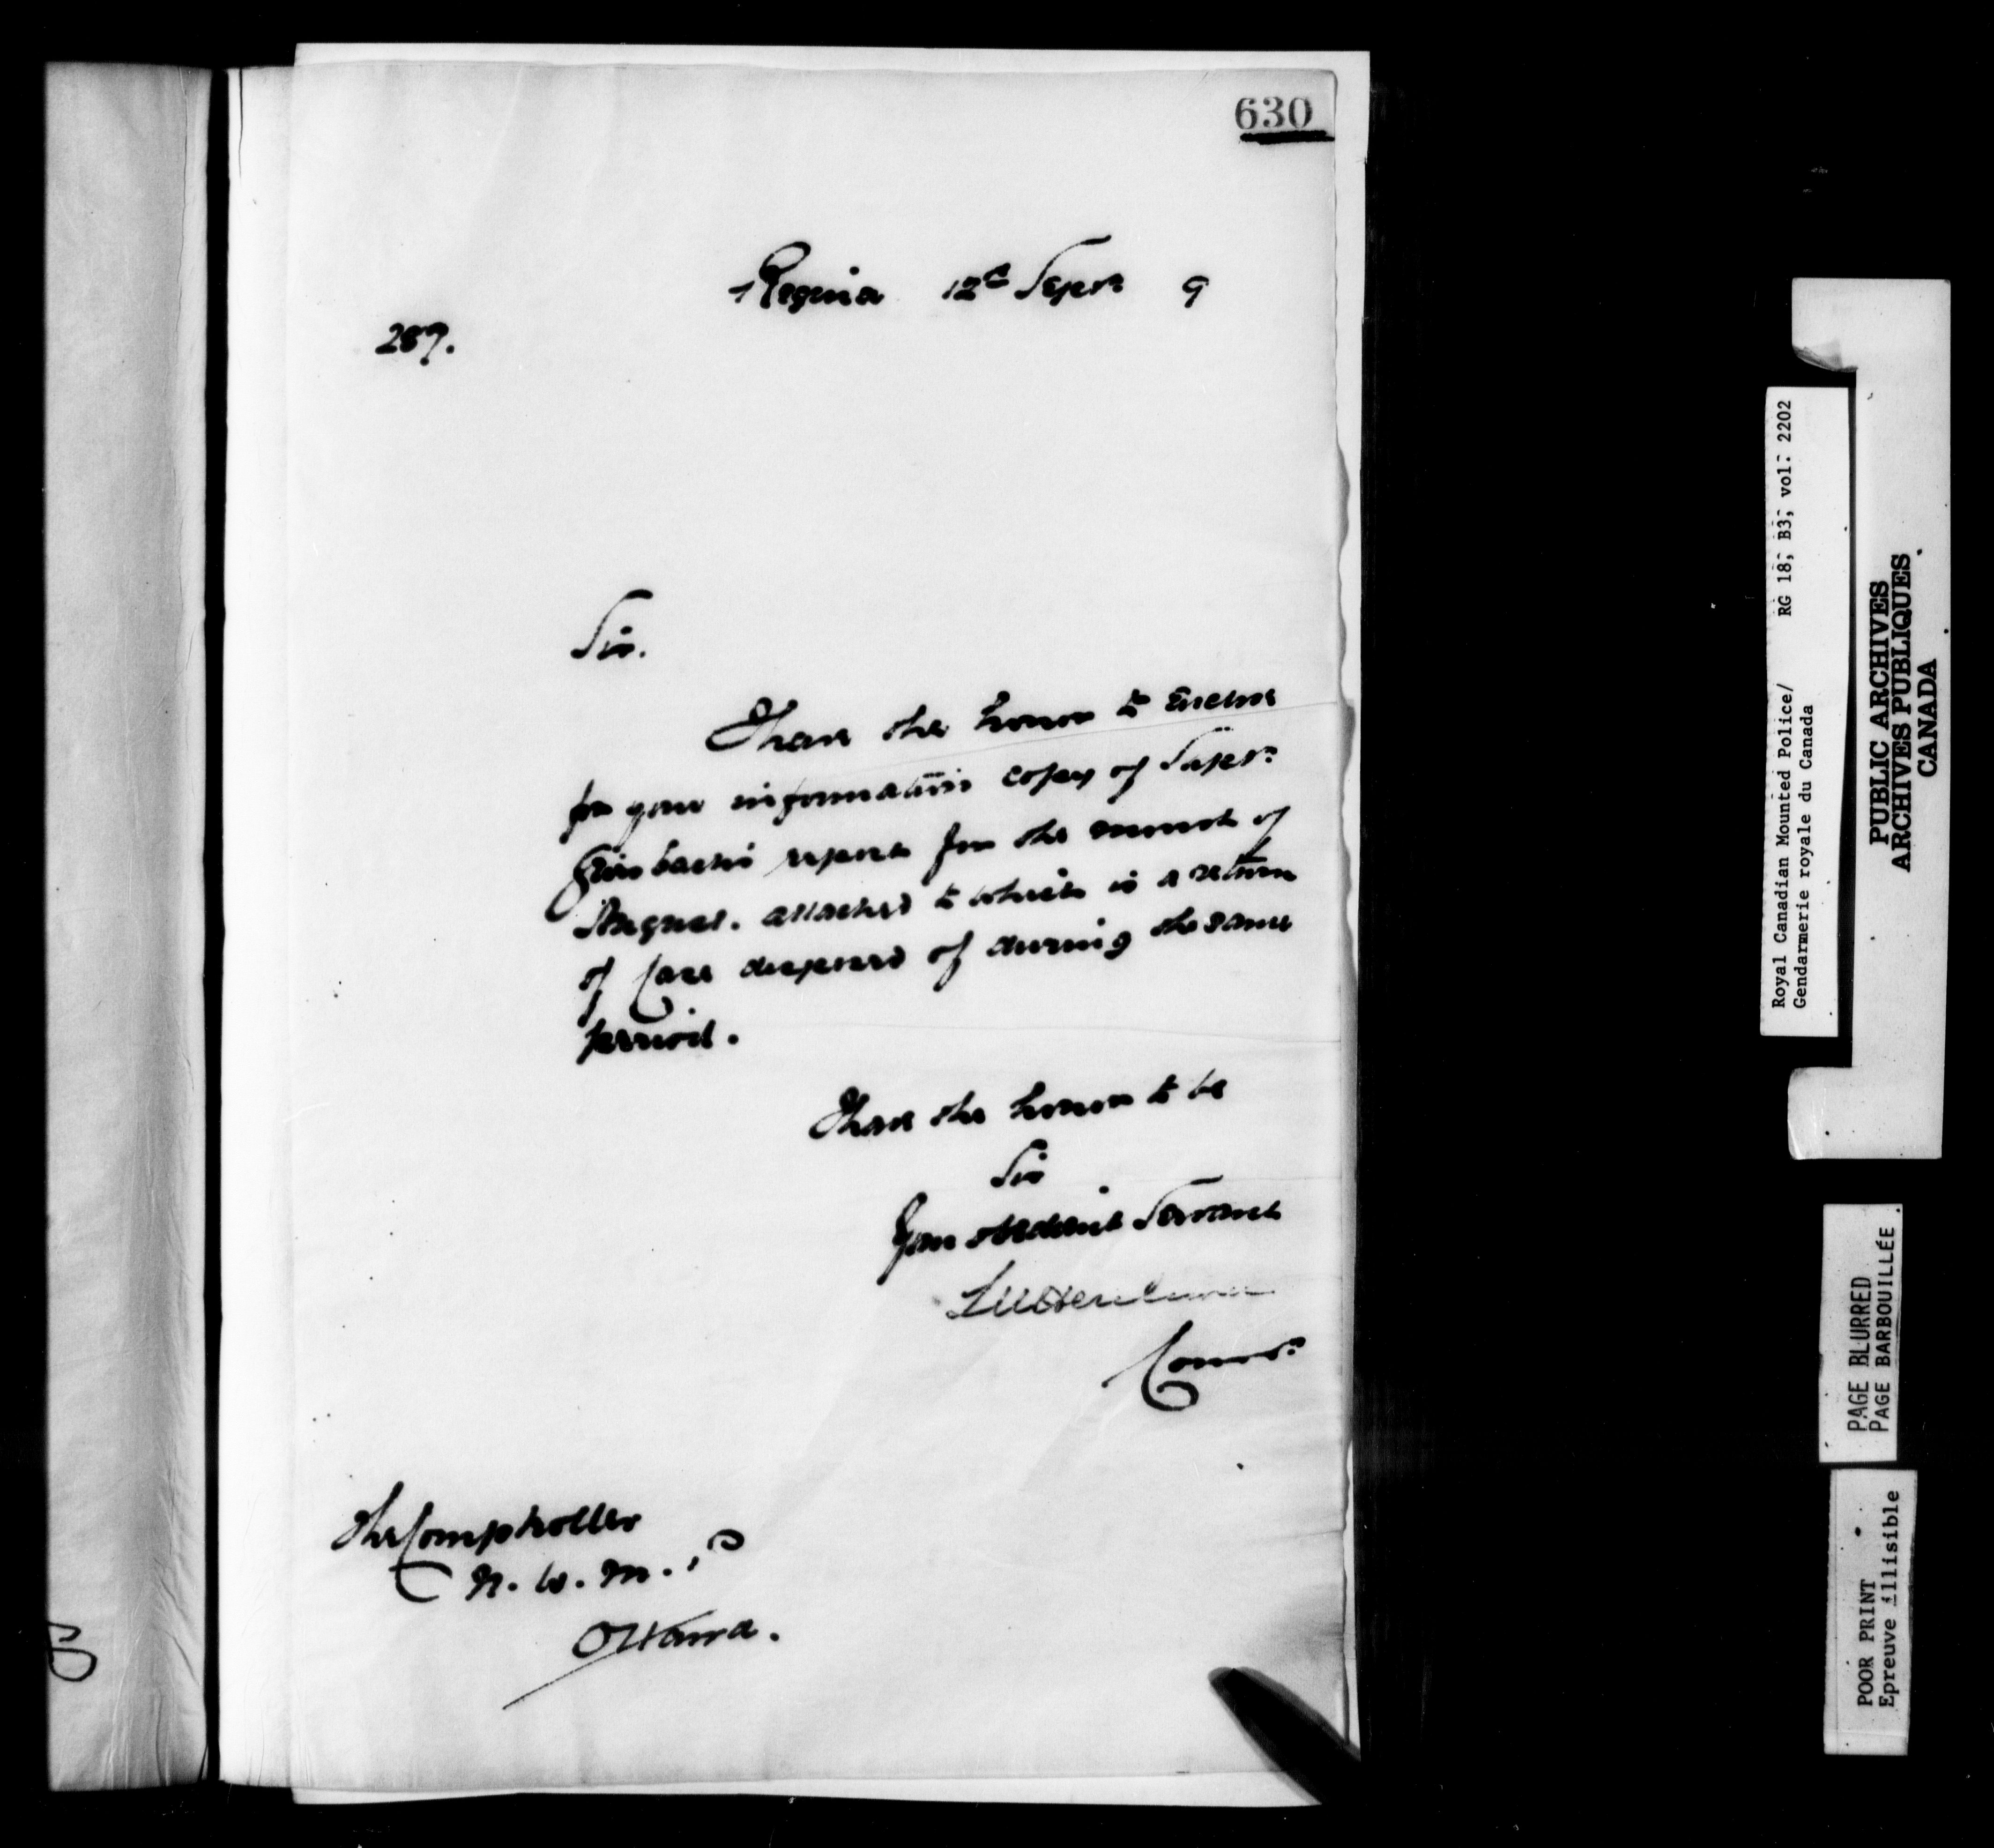 630
Regina 12th Sept 9
287.
Sir.
I have the honor to enclose
for your information copy of Supt
Griesbach's report for the month of
August. attached to which is a return
of Cases disposed of during the same
period.
I have the honor to be
Sir
Your obedient Servant
LWHerchmer
Commr
The Comptroller
N. W. M. P
Ottawa.
Royal Canadian Mounted Police/ RG 18, B3, vol. 2202
Gendarmerie royale du Canada
PUBLIC ARCHIVES
ARCHIVES PUBLIQUES
CANADA
PAGE BLURRED
PAGE BARBOUILLÉE
POOR PRINT
Epreuve illisible